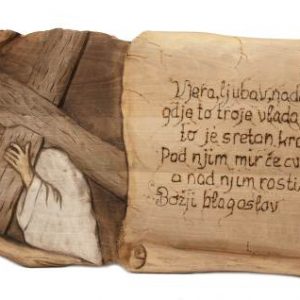 Vjera, ljubav, nada
gdje to troje vlada
to je sretan
Pod njim mir če cv
a nad njim rasti
Božji blagoslov